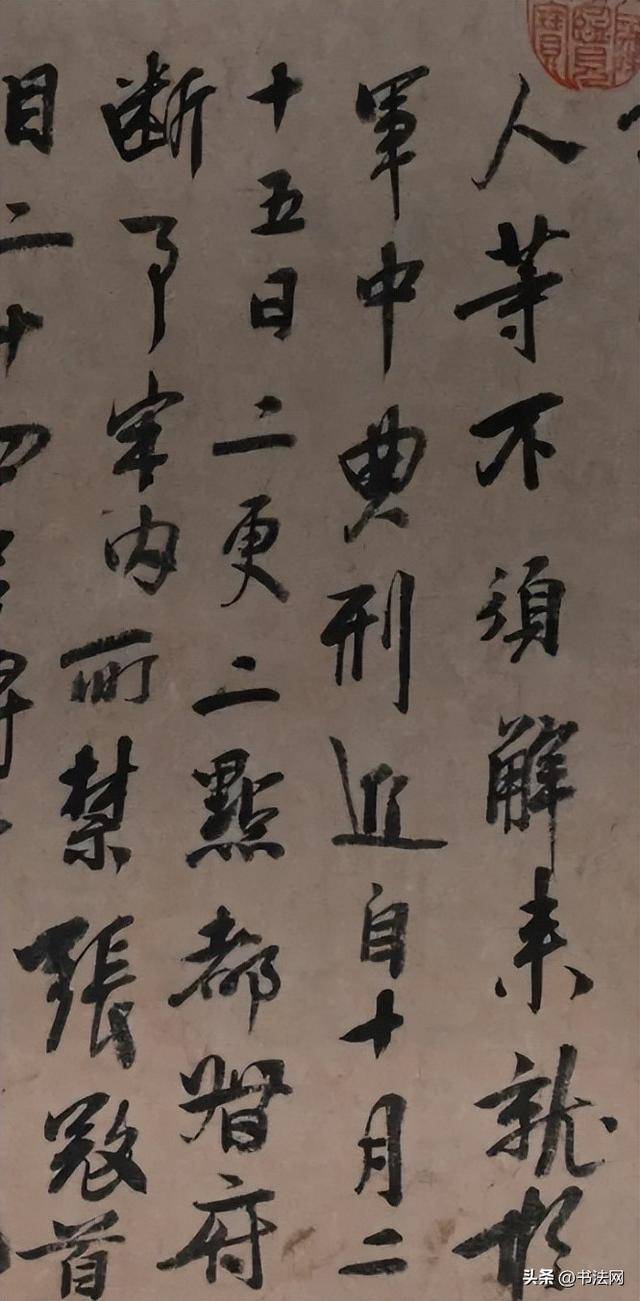 人等不須解来就於
軍中典刑近自十月二
十五日二更二點都督府
斷了牢内所禁張首
目二十四
头条 @书法网